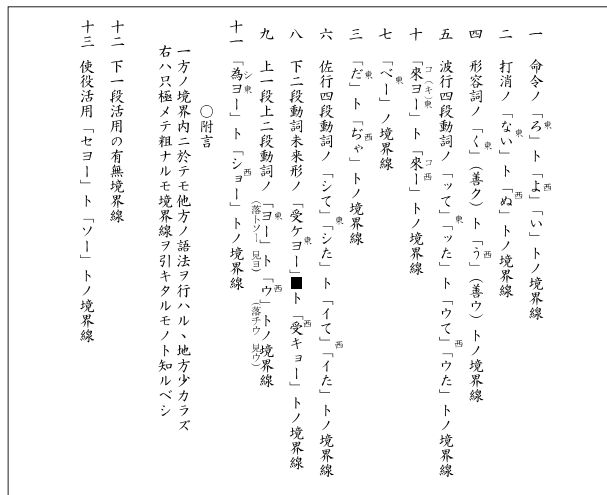 一　命令ノ「ろ」東ト「よ」西「い」トノ境界線
二　打消ノ「ない」東ト「ぬ」西トノ境界線
四　形容詞ノ「く」東(善ク)ト「う」西(善ウ)トノ境界線
五　波行四段動詞ノ「ッて」「ッた」東ト「ウて」「ウた」西トノ境界線
十　「來ヨー」コ(キ)東ト「來ー」コ西トノ境界線
七　「べー」東ノ境界線
三　「だ」東ト「ぢゃ」西トノ境界線
六　佐行四段動詞ノ「シて」「シた」東ト「イて」「イた」西トノ境界線
八　下二段動詞未來形ノ「受ケヨー」東■ト「受キョー」西トノ境界線
九　上一段上二段動詞ノ「ヨー」東(落トソー 見ヨ)ト「ウ」西(落チウ 見ウ)トノ境界線
十一　「為ヨー」シ東ト「ショー」西トノ境界線
○附言
一方ノ境界内ニ於テモ他方ノ語法ヲ行ハル、地方少カラズ
右ハ只極メテ粗ナルモ境界線ヲ引キタルモノト知ルベシ
十二　下一段活用の有無境界線
十三　使役活用「セヨー」ト「ソー」トノ境界線